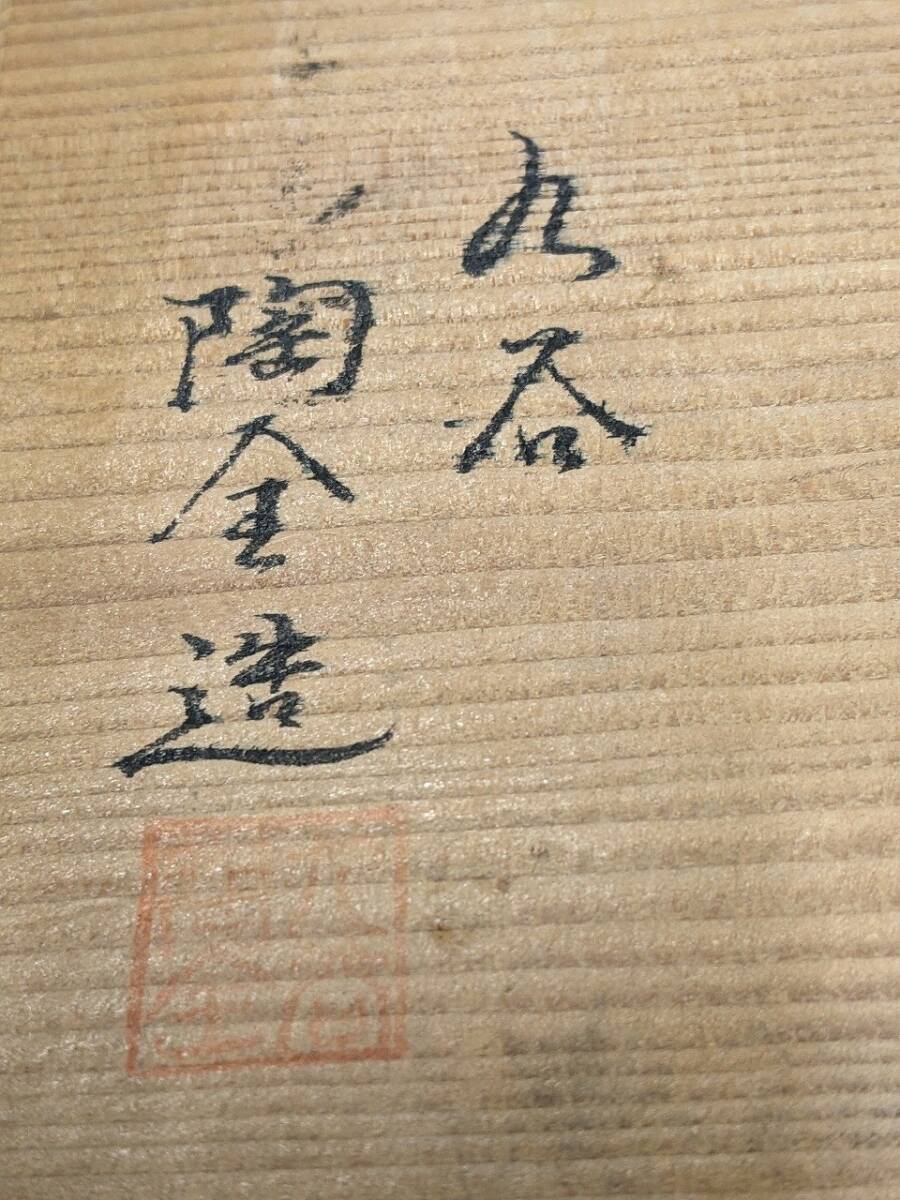 九谷
陶全造